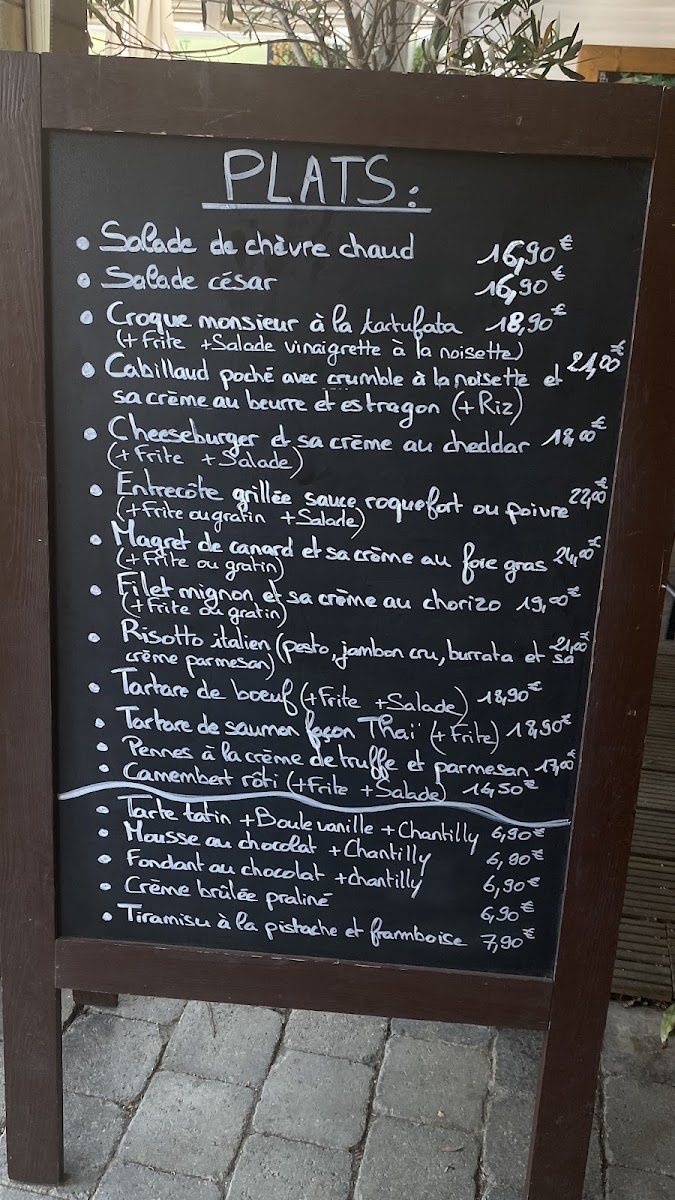 PLATS:
• Salade de chèvre chaud 16,90€
• Salade césar 16,90€
• Croque monsieur à la tartufata 18,90€
(+ Frite + Salade vinaigrette à la noisette)
• Cabillaud poché avec crumble à la noisette et 21,00€
sa crème au beurre et estragon (+ Riz)
• Cheeseburger et sa crème au cheddar 18,00€
(+ Frite + Salade)
• Entrecôte grillée sauce roquefort ou poivre 22,00€
(+ Frite ou gratin + Salade)
• Magret de canard et sa crème au foie gras 24,00€
(+ Frite ou gratin)
• Filet mignon et sa crème au chorizo 19,00€
(+ Frite ou gratin)
• Risotto italien (pesto, jambon cru, burrata et sa 21,00€
crème parmesan)
• Tartare de boeuf (+ Frite + Salade) 18,90€
• Tartare de saumon façon Thaï (+ Frite) 18,90€
• Pennes à la crème de truffe et parmesan 17,00€
• Camembert rôti (+ Frite + Salade) 14,50€
• Tarte tatin + Boule vanille + Chantilly 6,90€
• Mousse au chocolat + Chantilly 6,90€
• Fondant au chocolat + chantilly 6,90€
• Crème brûlée praliné 6,90€
• Tiramisu à la pistache et framboise 7,90€